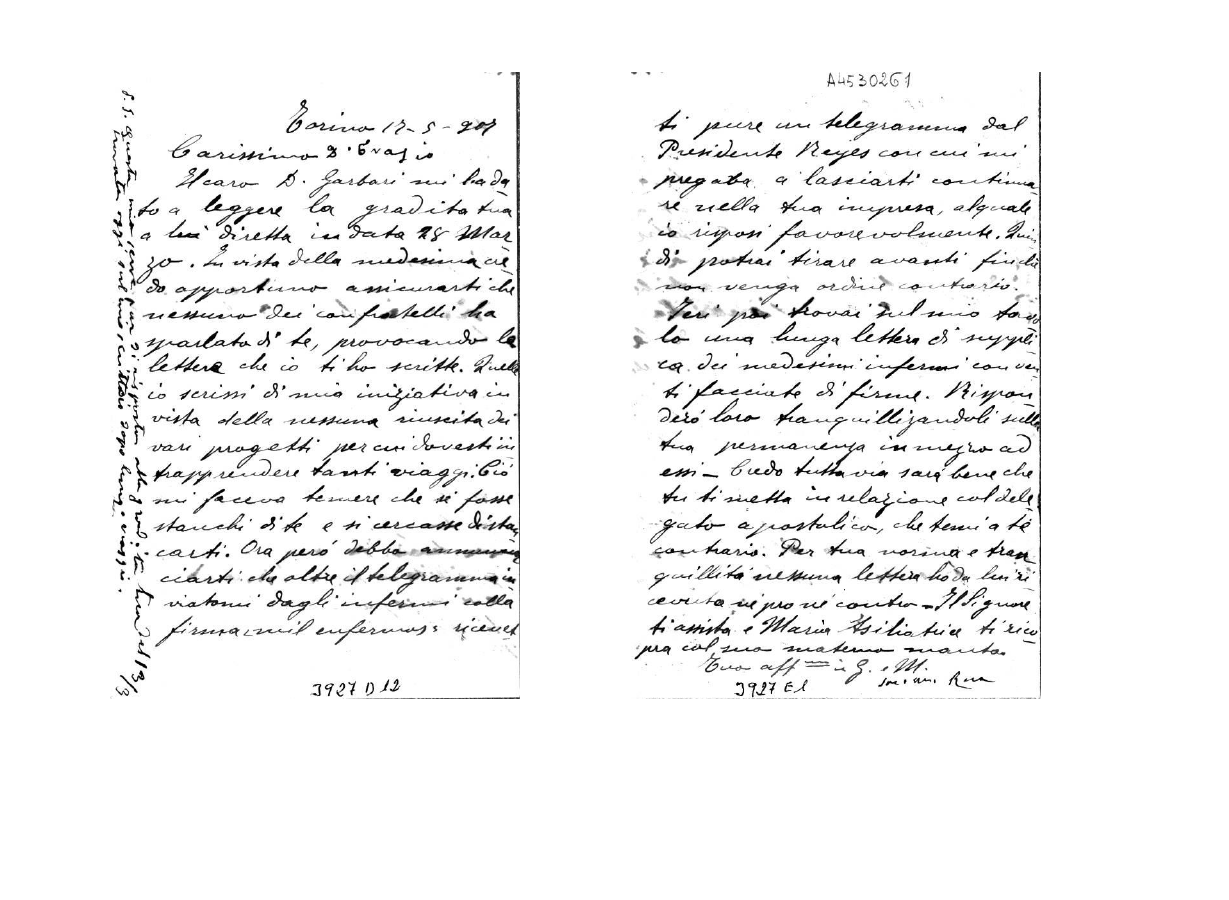 Torino 17-5-907
Carissimo D. Evasio
Il caro D. Garbari mi ha da
to a leggere la gradita tua
a lui diretta in data 28 Mar
zo. In vista della medesima cre
do opportuno assicurarti che
nessuno dei confratelli ha
sparlato di te, provocando la
lettera che io ti ho scritte. Quella
io scrissi di mia iniziativa in
vista della nessuna riuscita dei
vari progetti per cui dovesti in
trapprendere tanti viaggi. Ciò
mi faceva temere che si fosse
stanchi di te e si cercasse distac
carti. Ora però debbo annun
ciarti che oltre il telegramma in
viatomi dagli infermi colla
firma: mil enfermos: ricevet
J927 D12
P.S. Questa mia serva pur di risposta alla gradita tua del 13/3
trovata oggi sul mio scrittoio dopo lungi viaggi.
A4530261
ti pure un telegramma dal
Presidente Reyes con cui mi
pregava a lasciarti continua
re nella tua impresa, al quale
io risposi favorevolmente. Quin
di potrai tirare avanti finchè
non venga ordine contrario.
Ieri poi trovai sul mio tavo
lo una lunga lettera di suppli
ca dei medesimi infermi con ven
ti facciate di firme. Rispon
derò loro tranquillizandoli sulla
tua permanenza in mezzo ad
essi - Credo tuttavia sarà bene che
tu ti metta in relazione col dele
gato apostolico, che temi a te
contrario. Per tua norma e tran
quillità nessuna lettera ho da lui ri
cevuta nè pro nè contro - Il Signore
ti assista e Maria Ausiliatrice ti rico
pra col suo materno manto.
Tuo aff in G. e M.
Sac. Mic. Rua
J927 E1